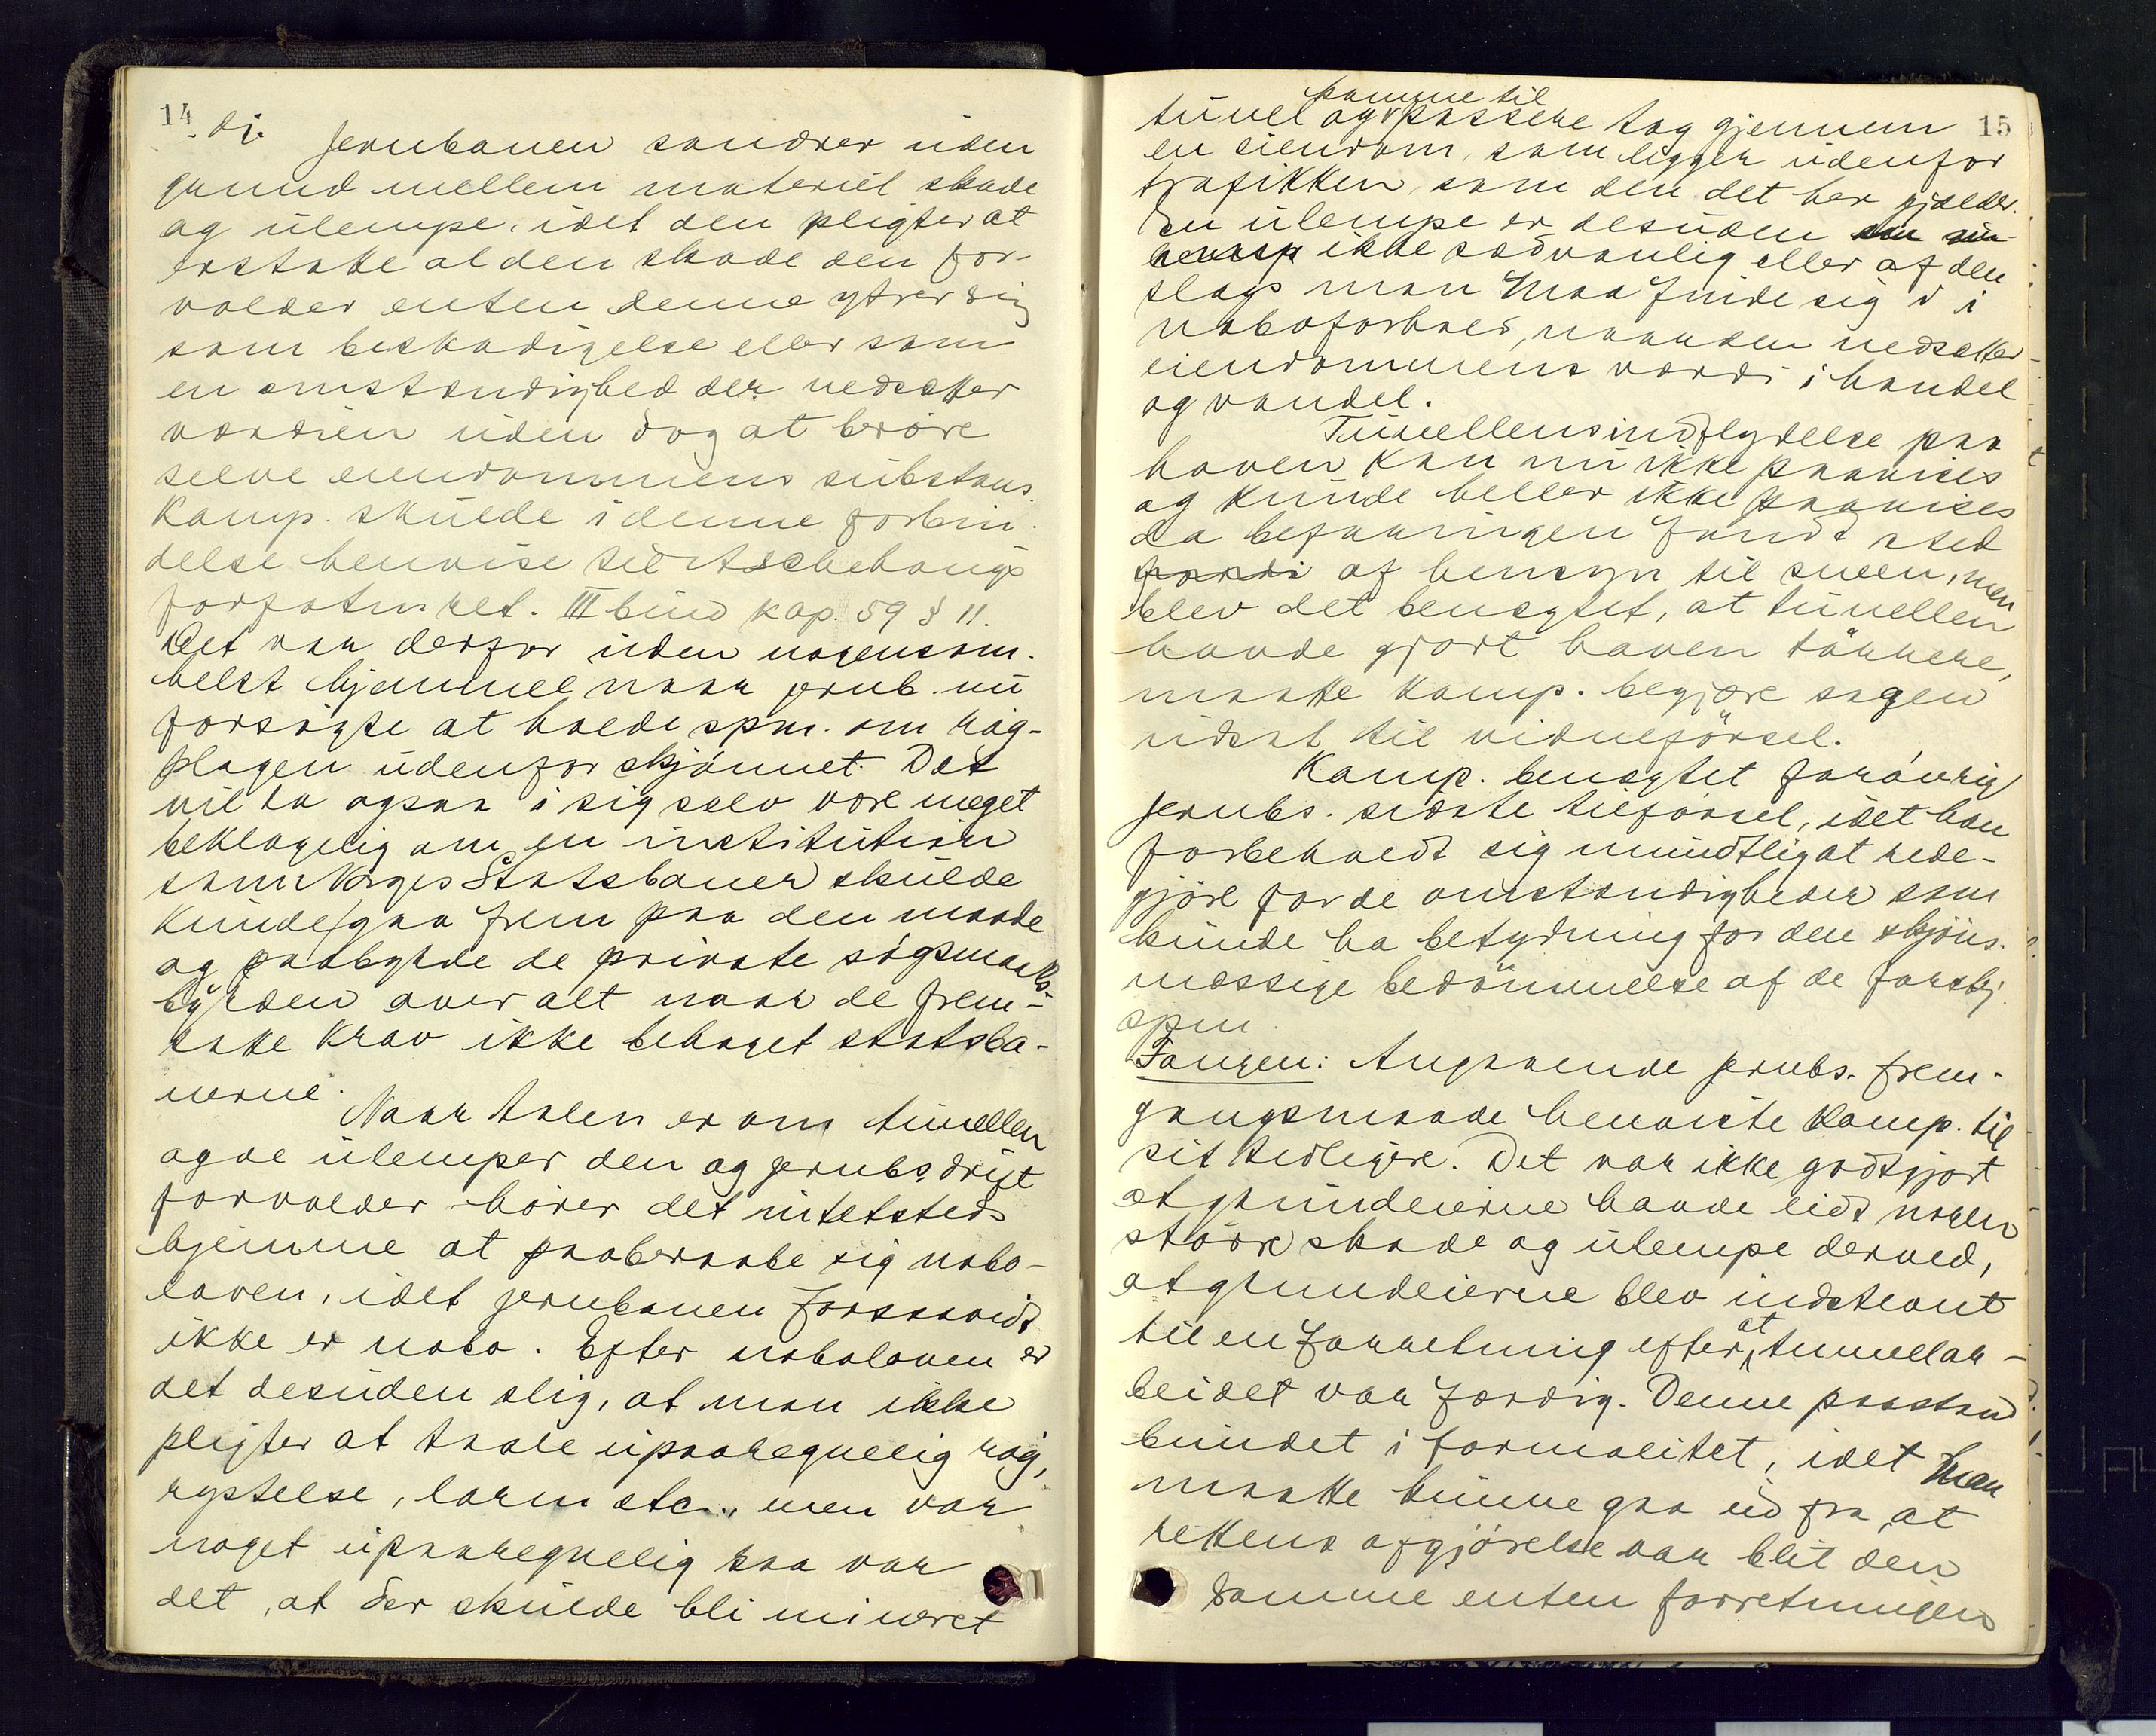 14
di. Jernbanen sondrer uden
grund mellem materiel skade
og ulempe, idet den pligter at
erstatte al den skade den for-
volder enten denne ytrer sig
som beskadigelse eller som
en omstændighed der nedsætter
værdien uden dog at berøre
selve eiendommens substans.
Komp. skulde i denne forbin-
delse henvise til Aschehougs
forfatn.ret. III bind kap. 59 § 11.
Det var derfor uden nogensom-
helst hjemmel naar jernb. nu
forsøgte at holde spm. om røg-
plagen udenfor skjønnet. Det
vil da ogsaa i sig selv være meget
beklagelig om en institution
som Norges Statsbaner skulde
kunde gaa frem paa den maade
og paabyrde de private søgsmaals-
byrden over alt naar de frem-
satte krav ikke behaget statsba-
nerne.
Naar talen er om tunellen
og de ulemper den og jernbs. drift
forvolder hører det intetsteds
hjemme at paaberaabe sig nabo-
loven, idet jernbanen forsaavidt
ikke er nabo. Efter naboloven er
det desuden slig, at man ikke
pligter at taale upaaregnelig røg,
rystelse, larm etc., men var
noget upaaregnelig saa var
det, at der skulde bli mineret
15
komme til
tunel og passere tog gjennem
en eiendom, som ligger udenfor
trafikken, som den det her gjælder.
En ulempe er desuden
ikke sædvanlig eller af den
slags man maa finde sig i i
naboforhold, naar den nedsætter
eiendommens værdi i handel
og vandel.
Tunellens indflydelse paa
haven kan nu ikke paavises
og kunde heller ikke paavises
da befaringen fandt sted
fordi af hensyn til sneen, men
blev det benegtet, at tunellen
havde gjort haven tørrere,
maatte komp. begjære sagen
udsat til vidneførsel.
Komp. benegtet forøvrig
jernbs. sidste tilførsel, idet han
forbeholdt sig mundtlig at rede-
gjøre for de omstændigheder som
kunde ha betydning for den skjøns-
mæssige bedømmelse af de forskj.
spm.
Fougen: Angaaende jernbs. frem-
gangsmaade henviste komp. til
sit tidligere. Det var ikke godtgjort
at grundeierne havde lidt nogen
større skade og ulempe derved,
at grundeierne blev indstevnt
til en forretning efter at tunellar-
beidet var færdig. Denne paastand
bundet i formalitet, idet man
maatte kunne gaa ud fra, at
rettens afgjørelse var blit den
samme enten forretningen